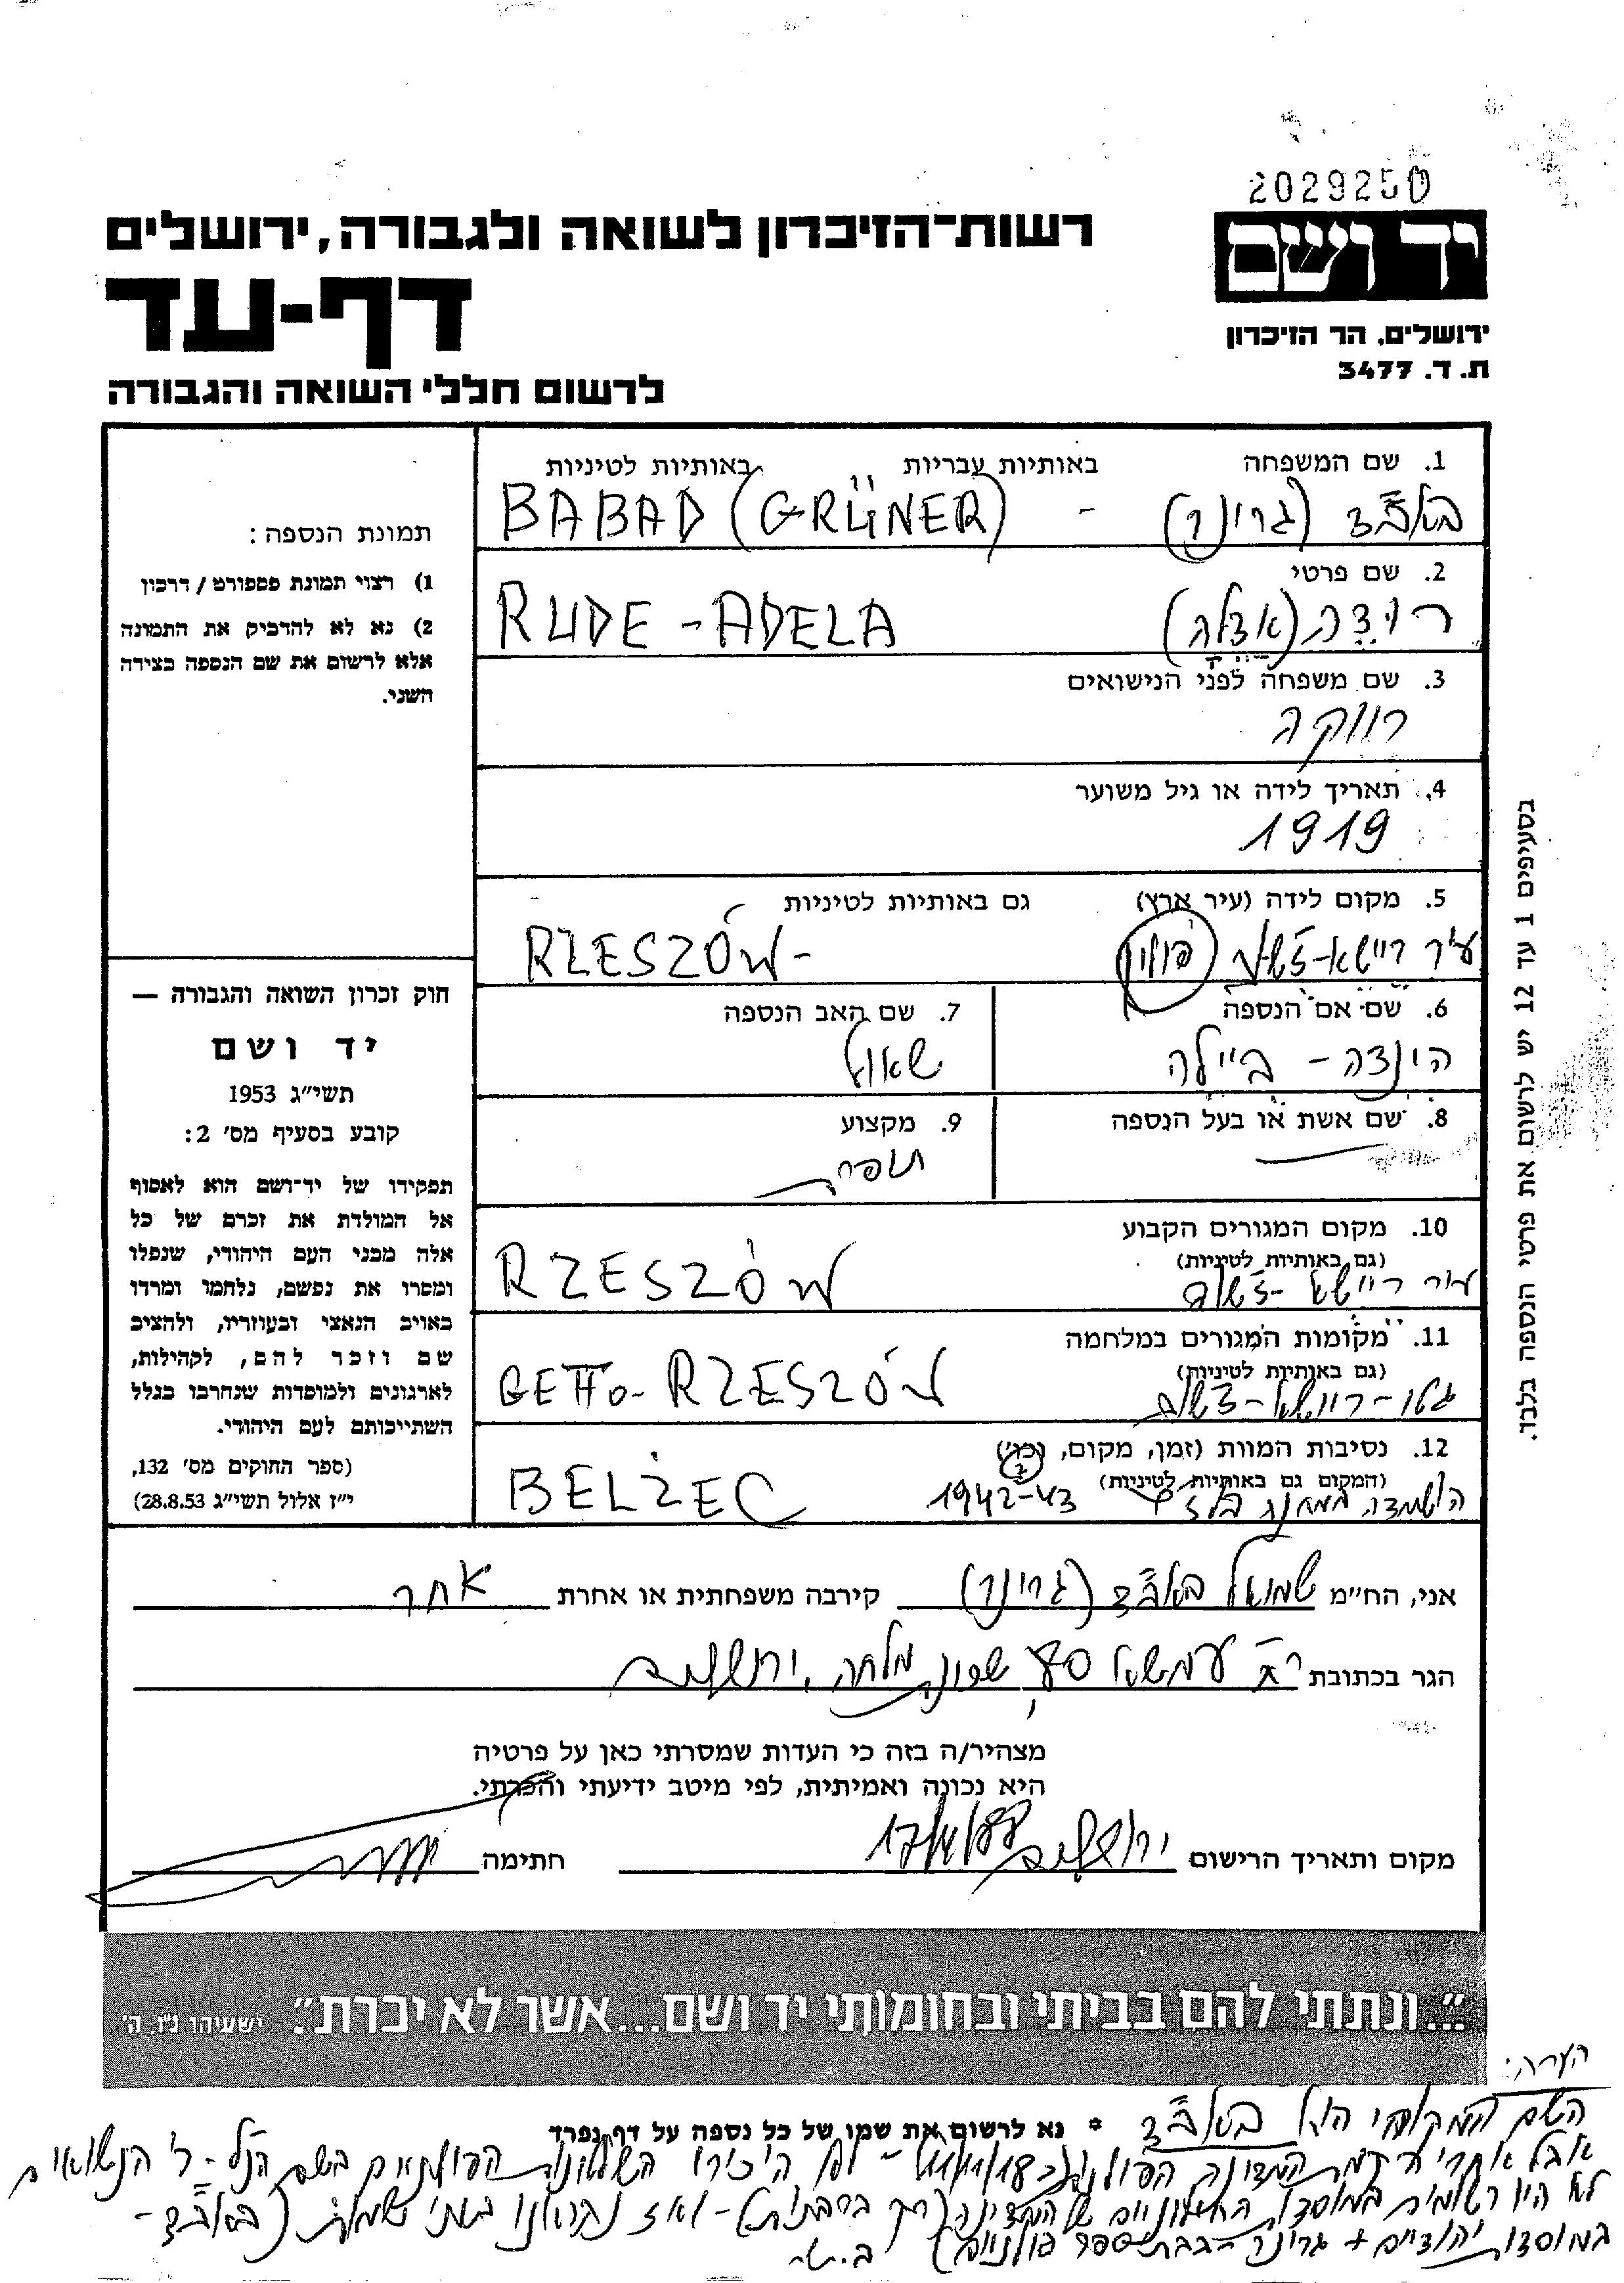 2029250
יד ושם
ירושלים, הר הזיכרון
ת. ד. 3477
רשות־הזיכרון לשואה ולגבורה, ירושלים
דף-עד
לרשום חללי השואה והגבורה
1. שם המשפחה באותיות עבריות באותיות לטיניות
באב"ד (גרינר) - BABAD (GRÜNER)
2. שם פרטי
רידה (אדלה) RUDE - ADELA
3. שם משפחה לפני הנישואים
רווקה
4. תאריך לידה או גיל משוער
1919
5. מקום לידה (עיר ארץ) גם באותיות לטיניות
עיר ריישא- (פולין) RZESZÓW -
6. שם אם הנספה
הינדה - ביילה
7. שם האב הנספה
שאול
8. שם אשת או בעל הנספה
9. מקצוע
תופרת
10. מקום המגורים הקבוע
(גם באותיות לטיניות)
עיר ריישא - RZESZÓW
11. מקומות המגורים במלחמה
(גם באותיות לטיניות)
גטו - ריישא - GETTO - RZESZÓW
12. נסיבות המוות (זמן, מקום, וכו')
(המקום גם באותיות לטיניות)
הושמדה במחנה בלזץ 1942-43 ? BELŻEC
תמונת הנספה:
1) רצוי תמונת פספורט / דרכון
2) נא לא להדביק את התמונה
אלא לרשום את שם הנספה בצידה
השני.
חוק זכרון השואה והגבורה —
יד ושם
תשי"ג 1953
קובע בסעיף מס' 2:
תפקידו של יד־ושם הוא לאסוף
אל המולדת את זכרם של כל
אלה מבני העם היהודי, שנפלו
ומסרו את נפשם, נלחמו ומרדו
באויב הנאצי ובעוזריו, ולהציב
שם וזכר להם, לקהילות,
לארגונים ולמוסדות שנחרבו בגלל
השתייכותם לעם היהודי.
(ספר החוקים מס' 132,
י"ז אלול תשי"ג 28.8.53)
בסעיפים 1 עד 12 יש לרשום את פרטי הנספה בלבד.
אני, הח"מ שמואל באב"ד (גרינר) קירבה משפחתית או אחרת אחר
הגר בכתובת מלחה, ירושלים
מצהיר/ה בזה כי העדות שמסרתי כאן על פרטיה
היא נכונה ואמיתית, לפי מיטב ידיעתי והכרתי.
מקום ותאריך הרישום ירושלים חתימה
"...ונתתי להם בביתי ובחומותי יד ושם...אשר לא יכרת". ישעיהו נ"ו, ה'
* נא לרשום את שמו של כל נספה על דף נפרד
הערה:
השם המקורי הוא באב"ד
אבל אחרי המדינה הפולנית 11/11/18 - לא הכירו השלטונות הפולנאים בשם הנ"ל - כי הנשואים
לא היו רשומים במוסדות של המדינה (רק ברבנות) - ואז נקראנו בשני שמות (באב"ד -
במוסדות יהודיים + גרינר - בבתי ספר פולניים)